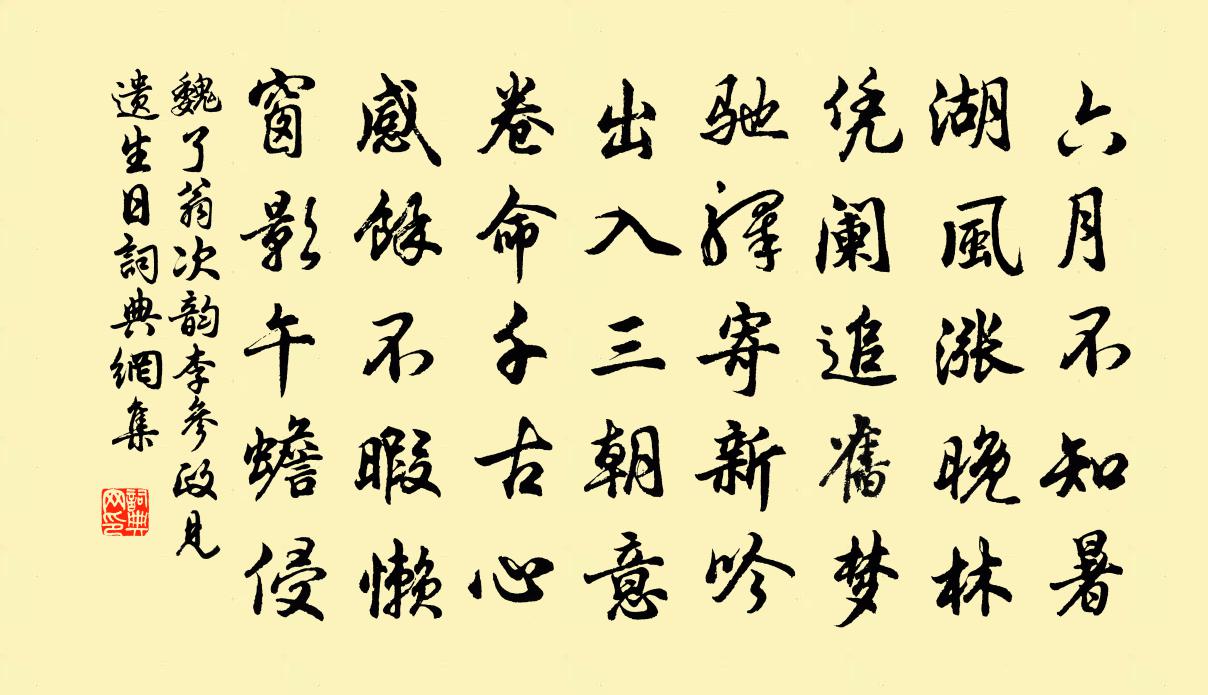 六月不知暑
湖風漲晚林
凭阑追舊梦
馳驛寄新吟
出入三朝意
卷命千古心
感餘不暇懶
窗影午蟾侵
魏了翁次韵李參政見
遺生日詞典網集
詞典网印